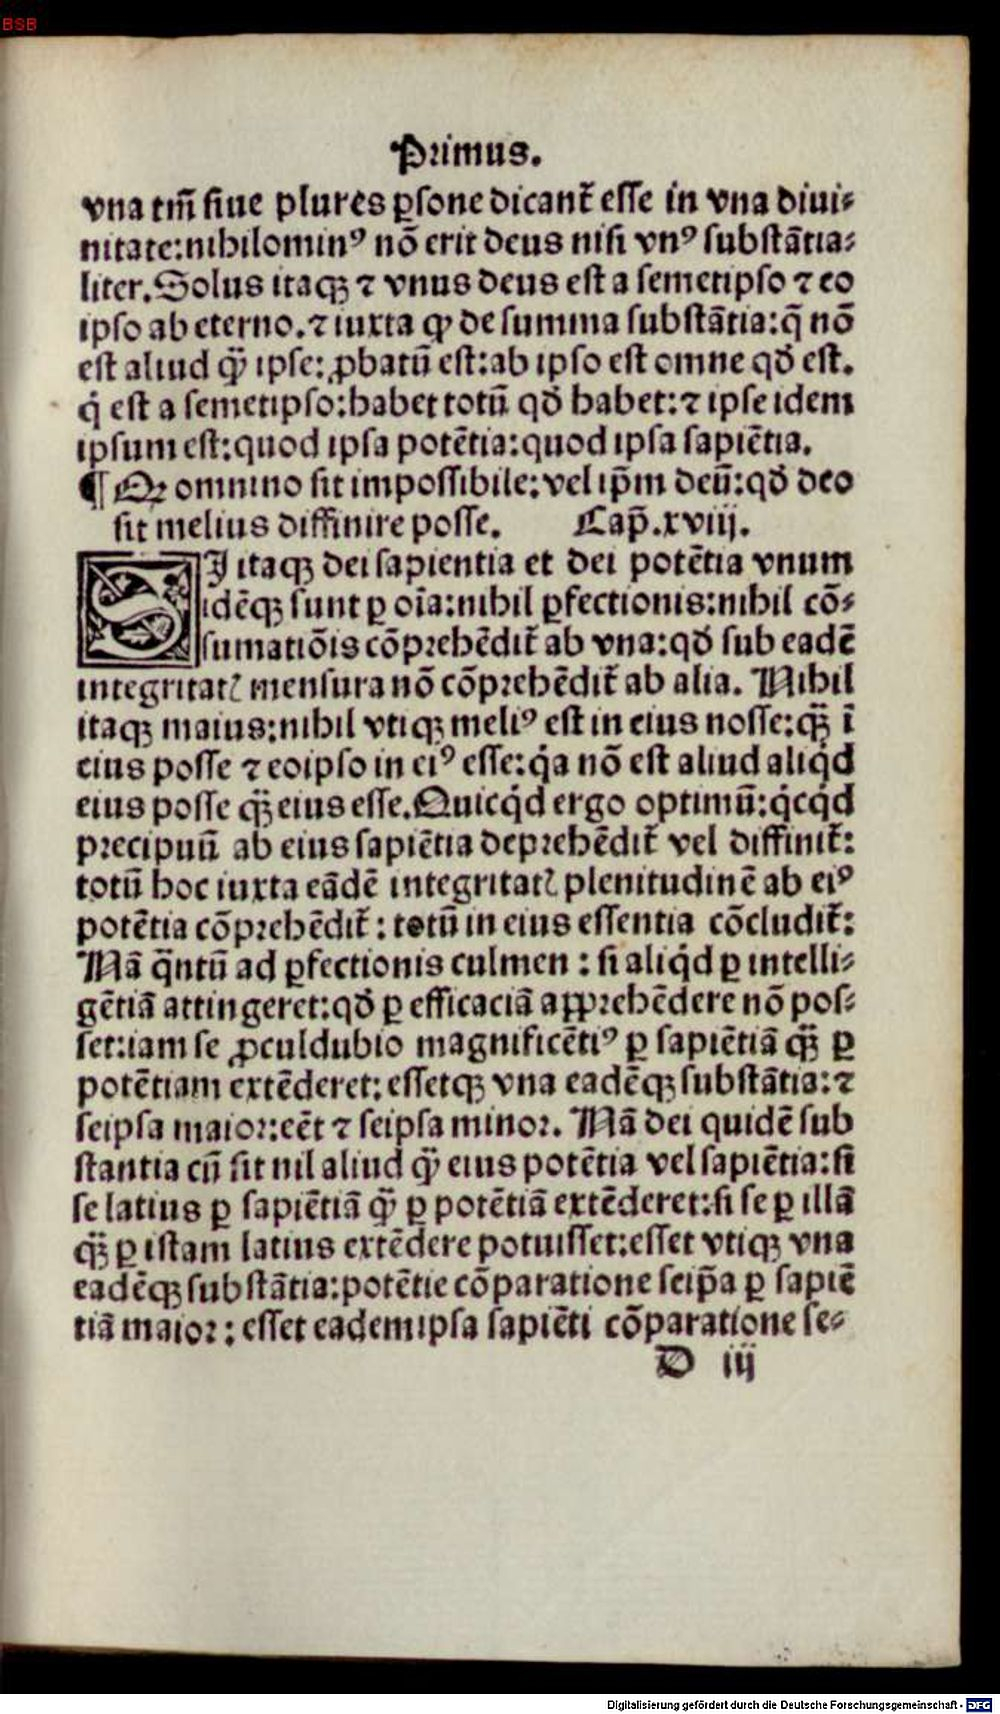 BSB
Primus.
vna tm̄ siue plures ꝑsone dicant᷑ esse in vna diui⸗
nitate:nihilominꝰ nō erit deus nisi vnꝰ substātia⸗
liter. Solus itaqꝫ ⁊ vnus deus est a semetipso ⁊ eo
ipso ab eterno.⁊ iuxta ꝙ de summa substātia:q̄ nō
est aliud qꝫ̄ ipse: ꝓbatū est:ab ipso est omne qd̓ est.
q̇ est a semetipso:habet totū qd̓ habet:⁊ ipse idem
ipsum est:quod ipsa potētia:quod ipsa sapiētia.
¶ Qꝛ omnino sit impossibile: vel ip̄m deū:qd̓ deo
sit melius diffinire posse. Cap̄.xviij.
SI itaqꝫ dei sapientia et dei potētia vnum
idēqꝫ sunt ꝑ oīa:nihil ꝑfectionis:nihil cō⸗
sumatiōis cōpꝛehēdit᷑ ab vna:qd̓ sub eadē
integritatꝭ mensura nō cōpꝛehēdit᷑ ab alia. Nihil
itaqꝫ maius:nihil vtiqꝫ meliꝰ est in eius nosse:qꝫ̄ ī
eius posse ⁊ eoipso in eiꝰ esse:q̇a nō est aliud aliq̇d
eius posse qꝫ̄ eius esse. Quicq̇d ergo optimū:q̇cq̇d
pꝛecipuū ab eius sapiētia depꝛehēdit᷑ vel diffinit᷑:
totū hoc iuxta eādē integritatꝭ plenitudinē ab eiꝰ
potētia cōpꝛehēdit᷑: totū in eius essentia cōcludit᷑:
Nā q̄ntū ad ꝑfectionis culmen : si aliq̇d ꝑ intelli⸗
gētiā attingeret:qd̓ ꝑ efficaciā appꝛehēdere nō pos⸗
set:iam se ꝓculdubio magnificētiꝰ ꝑ sapiētiā qꝫ̄ ꝑ
potētiam extēderet: essetqꝫ vna eadēqꝫ substātia: ⁊
seipsa maioꝛ:eēt ⁊ seipsa minoꝛ. Nā dei quidē sub
stantia cū sit nil aliud qꝫ̄ eius potētia vel sapiētia: si
se latius ꝑ sapiētiā qꝫ̄ ꝑ potētiā extēderet:si se ꝑ illā
qꝫ̄ ꝑ istam latius extēdere potuisset:esset vtiqꝫ vna
eadēqꝫ substātia:potētie cōparatione seip̄a ꝑ sapiē
tiā maioꝛ : esset eademipsa sapiēti cōparatione se⸗
D iij
Digitalisierung gefördert durch die Deutsche Forschungsgemeinschaft - DFG